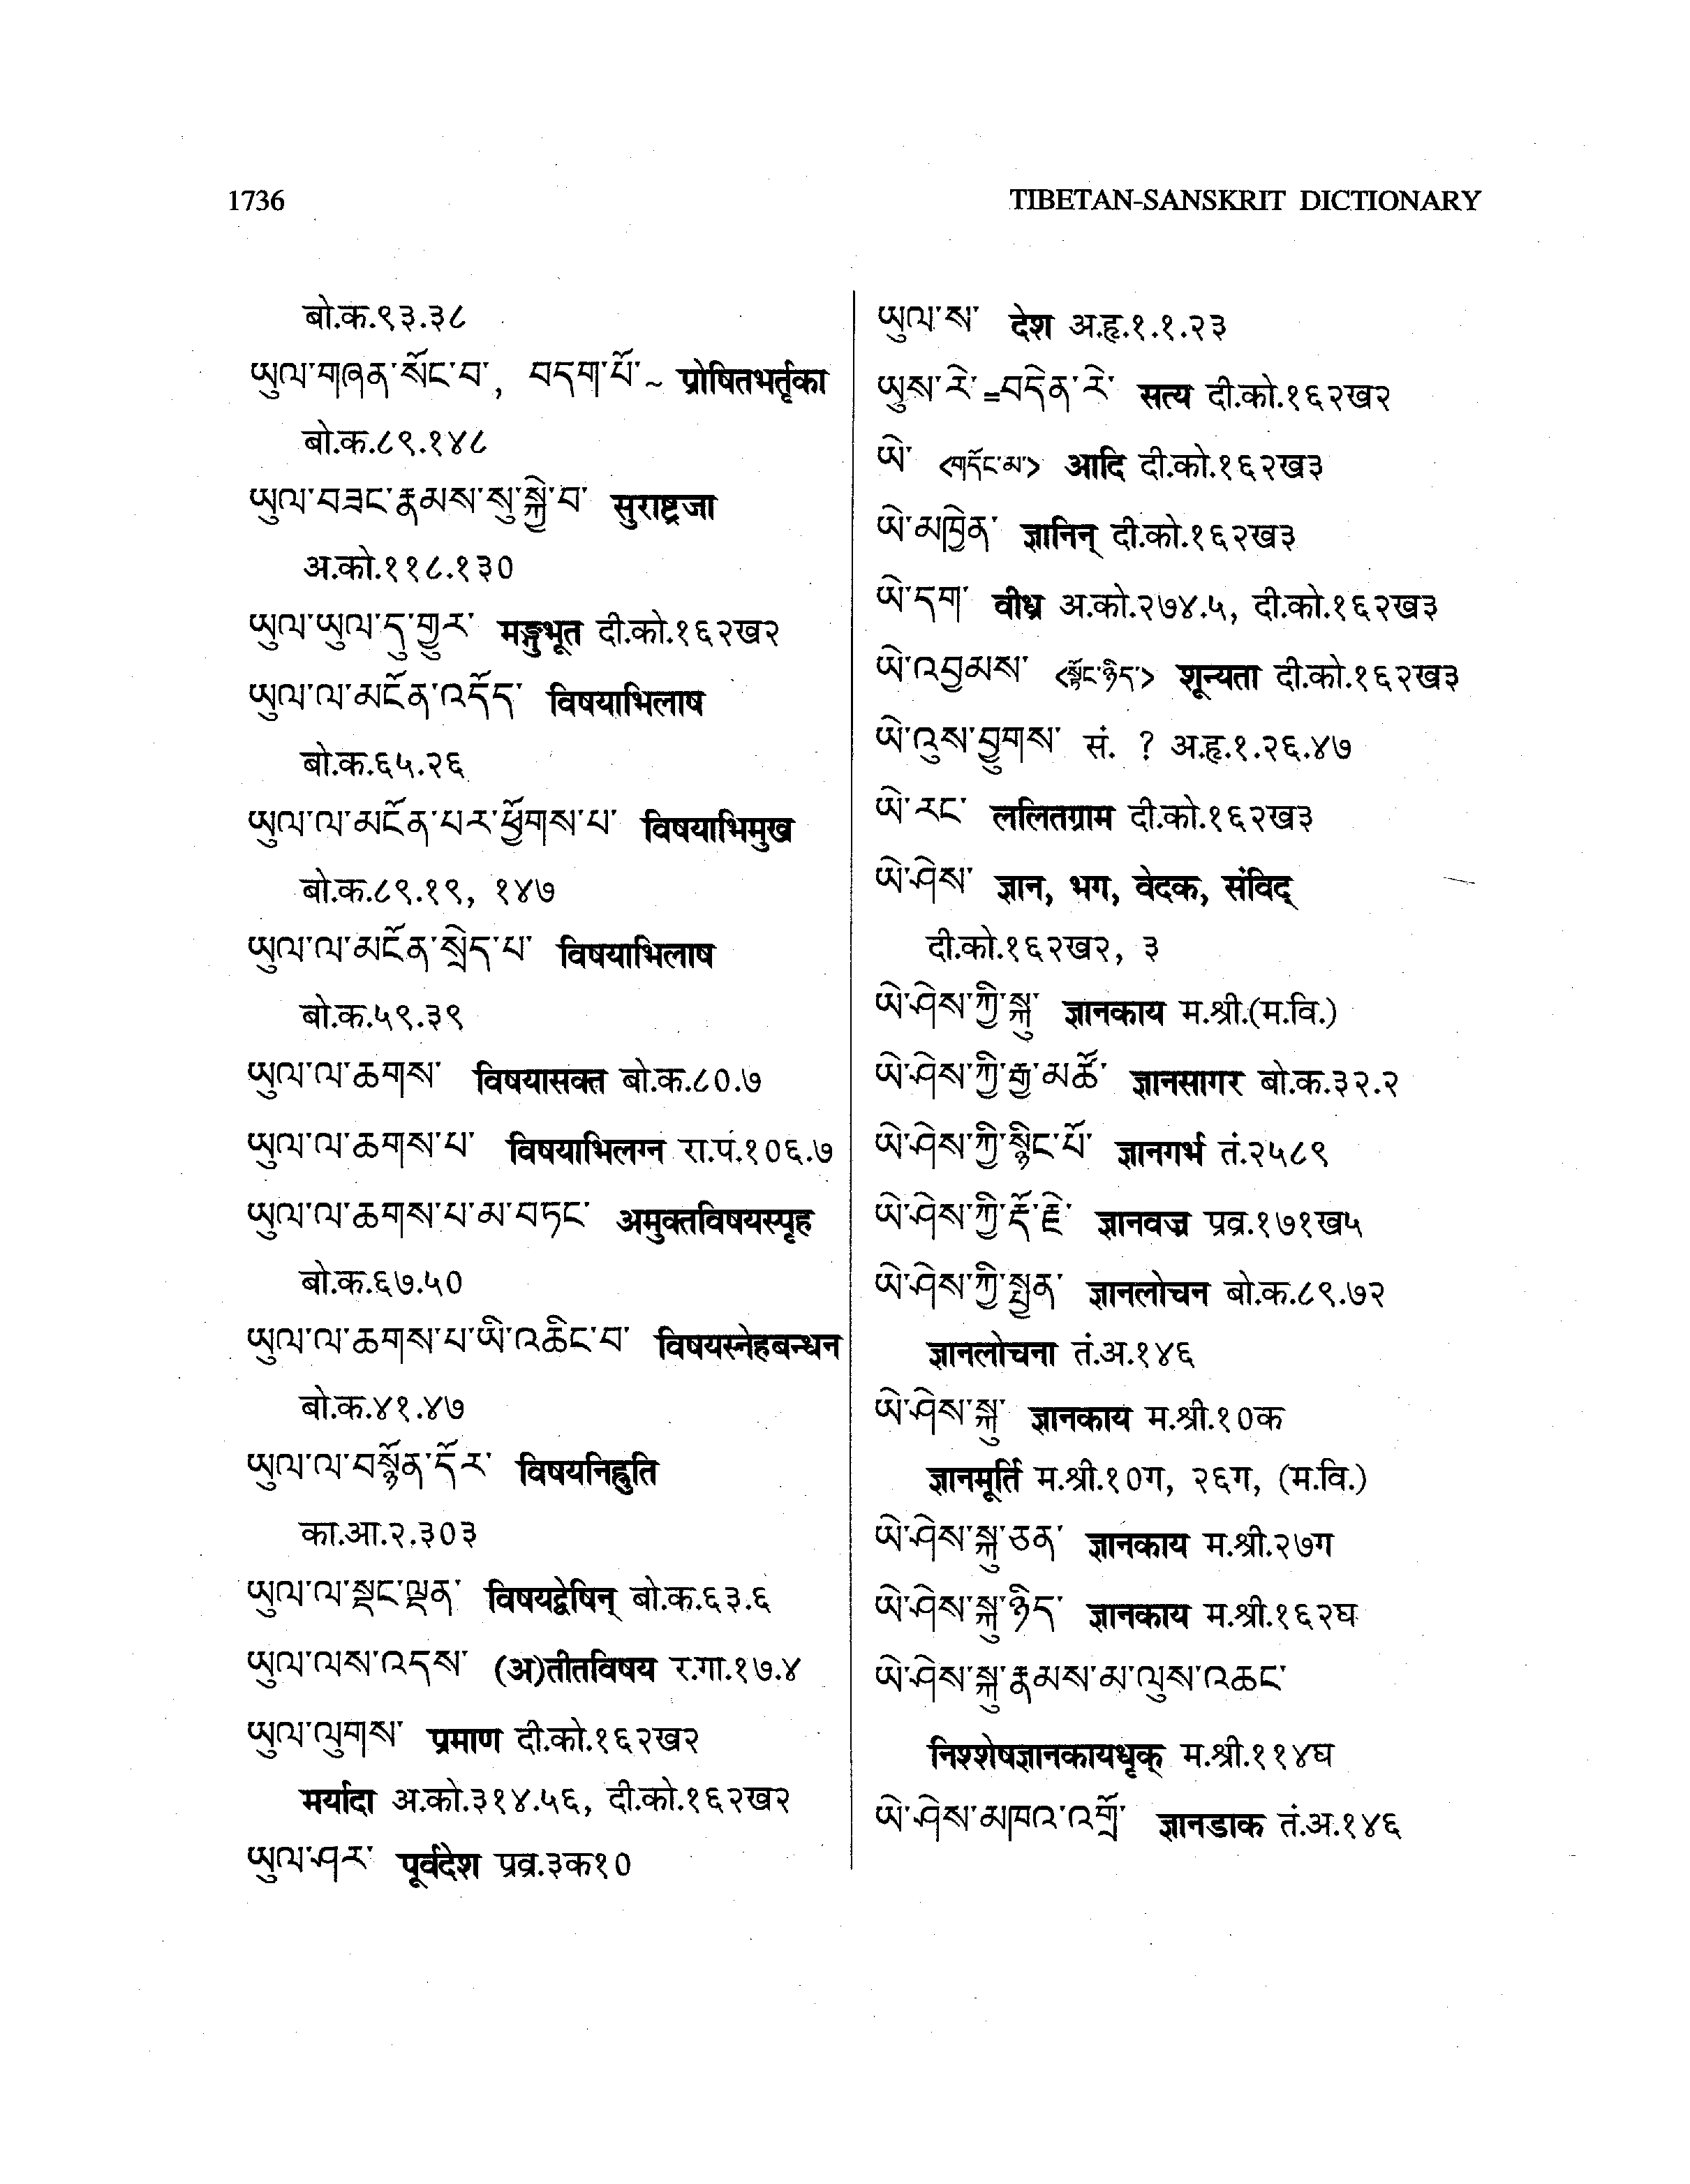 1736
TIBETAN-SANSKRIT DICTIONARY
बो.क.९३.३८
ཡུལ་གཞན་སོང་བ་, བདག་པོ་~ प्रोषितभर्तृका
बो.क.८९.१४८
ཡུལ་བཟང་རྣམས་སུ་སྐྱེ་བ་ सुराष्ट्रजा
अ.को.११८.१३०
ཡུལ་ཡུལ་དུ་གྱུར་ मङ्गुभूत दी.को.१६२ख२
ཡུལ་ལ་མངོན་འདོད་ विषयाभिलाष
बो.क.६५.२६
ཡུལ་ལ་མངོན་པར་ཕྱོགས་པ་ विषयाभिमुख
बो.क.८९.१९, १४७
ཡུལ་ལ་མངོན་སྲེད་པ་ विषयाभिलाष
बो.क.५९.३९
ཡུལ་ལ་ཆགས་ विषयासक्त बो.क.८०.७
ཡུལ་ལ་ཆགས་པ་ विषयाभिलग्न रा.प.१०६.७
ཡུལ་ལ་ཆགས་པ་མ་བཏང་ अमुक्तविषयस्पृह
बो.क.६७.५०
ཡུལ་ལ་ཆགས་པ་ཡི་འཆིང་བ་ विषयस्नेहबन्धन
बो.क.४१.४७
ཡུལ་ལ་བསྙོན་དོར་ विषयनिह्नुति
का.आ.२.३०३
ཡུལ་ལ་སྡང་ལྡན་ विषयद्वेषिन् बो.क.६३.६
ཡུལ་ལས་འདས་ (अ)तीतविषय र.गा.१७.४
ཡུལ་ལུགས་ प्रमाण दी.को.१६२ख२
मर्यादा अ.को.३१४.५६, दी.को.१६२ख२
ཡུལ་ཤར་ पूर्वदेश प्रव्र.३क१०
ཡུལ་ས་ देश अ.हृ.१.१.२३
ཡུས་རེ་=བདེན་རེ་ सत्य दी.को.१६२ख२
ཡེ་ <གདོང་མ་> आदि दी.को.१६२ख३
ཡེ་མཁྱེན་ ज्ञानिन् दी.को.१६२ख३
ཡེ་དག་ वीध्र अ.को.२७४.५, दी.को.१६२ख३
ཡེ་འབྱམས་ <སྟོང་ཉིད་> शून्यता दी.को.१६२ख३
ཡེ་འུས་བྱུགས་ सं. ? अ.हृ.१.२६.४७
ཡེ་རང་ ललितग्राम दी.को.१६२ख३
ཡེ་ཤེས་ ज्ञान, भग, वेदक, संविद्
दी.को.१६२ख२, ३
ཡེ་ཤེས་ཀྱི་སྐུ་ ज्ञानकाय म.श्री.(म.वि.)
ཡེ་ཤེས་ཀྱི་རྒྱ་མཚོ་ ज्ञानसागर बो.क.३२.२
ཡེ་ཤེས་ཀྱི་སྙིང་པོ་ ज्ञानगर्भ तं.२५८९
ཡེ་ཤེས་ཀྱི་རྡོ་རྗེ་ ज्ञानवज्र प्रव्र.१७१ख५
ཡེ་ཤེས་ཀྱི་སྤྱན་ ज्ञानलोचन बो.क.८९.७२
ज्ञानलोचना तं.अ.१४६
ཡེ་ཤེས་སྐུ་ ज्ञानकाय म.श्री.१०क
ज्ञानमूर्ति म.श्री.१०ग, २६ग, (म.वि.)
ཡེ་ཤེས་སྐུ་ཅན་ ज्ञानकाय म.श्री.२७ग
ཡེ་ཤེས་སྐུ་ཉིད་ ज्ञानकाय म.श्री.१६२घ
ཡེ་ཤེས་སྐུ་རྣམས་མ་ལུས་འཆང་
निश्शेषज्ञानकायधृक् म.श्री.११४घ
ཡེ་ཤེས་མཁའ་འགྲོ་ ज्ञानडाक तं.अ.१४६